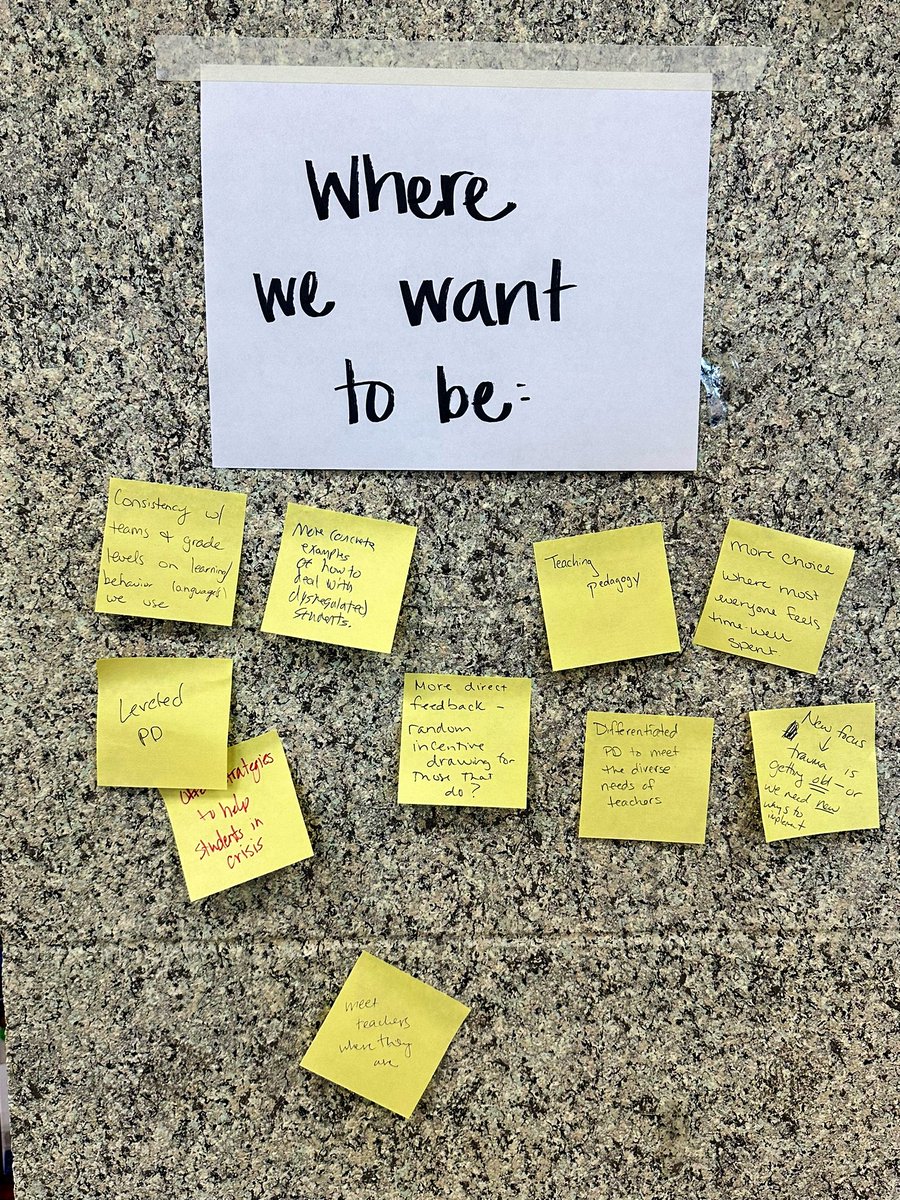 Where
we want
to be:
Consistency w/
teams & grade
levels on learning/
behavior language(s)
we use
More concrete
examples
of how to
deal with
dysregulated
students.
Teaching
pedagogy
More choice
where most
everyone feels
time-well
spent
Leveled
PD
strategies
to help
students in
crisis
More direct
feedback -
random
incentive
drawing for
those that
do?
Differentiated
PD to meet
the diverse
needs of
teachers
New focus
↓
trauma is
getting old - or
we need new
ways to
implement
meet
teachers
where they
are